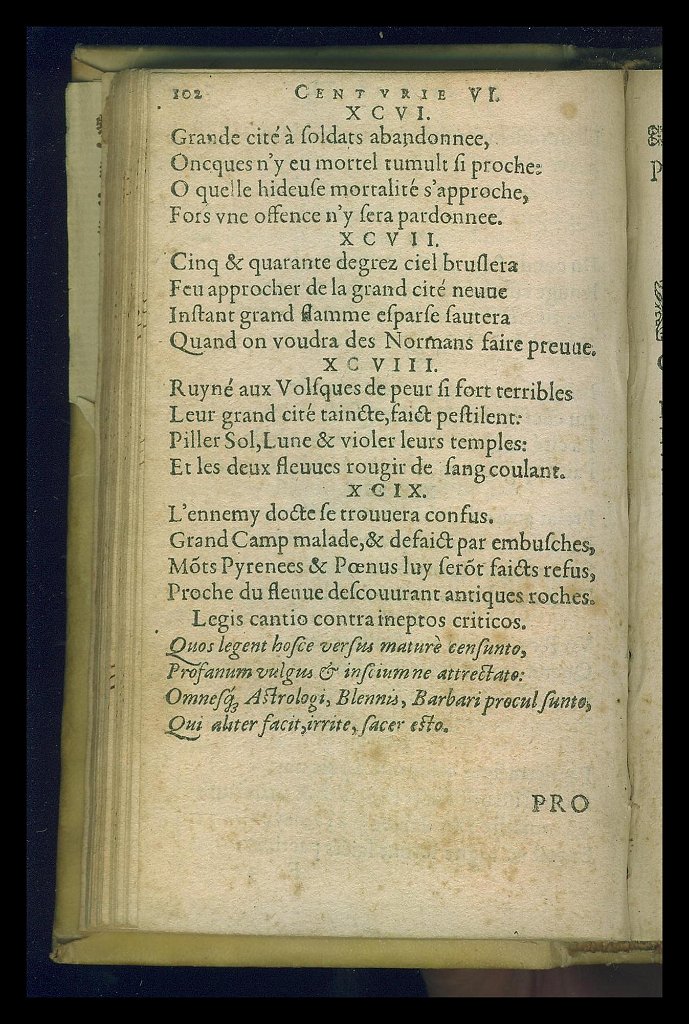 102 CENTVRIE VI.
XCVI.
Grande cité à ſoldats abandonnee,
Oncques n'y eu mortel tumult ſi proche:
O quelle hideuſe mortalité s'approche,
Fors vne offence n'y ſera pardonnee.
XCVII.
Cinq & quarante degrez ciel bruſlera
Feu approcher de la grand cité neuue
Inſtant grand flamme eſparſe ſautera
Quand on voudra des Normans faire preuue.
XCVIII.
Ruyné aux Volſques de peur ſi fort terribles
Leur grand cité taincte, faict peſtilent:
Piller Sol, Lune & violer leurs temples:
Et les deux fleuues rougir de ſang coulant.
XCIX.
L'ennemy docte ſe trouuera confus.
Grand Camp malade, & defaict par embuſches,
Mõts Pyrenees & Pœnus luy ſerõt faicts refus,
Proche du fleuue deſcouurant antiques roches.
Legis cantio contra ineptos criticos.
Quos legent hoſce verſus maturè cenſunto,
Profanum vulgus & inſcium ne attrectato:
Omneſq́; Aſtrologi, Blennis, Barbari procul ſunto,
Qui aliter facit, irrite, ſacer eſto.
PRO